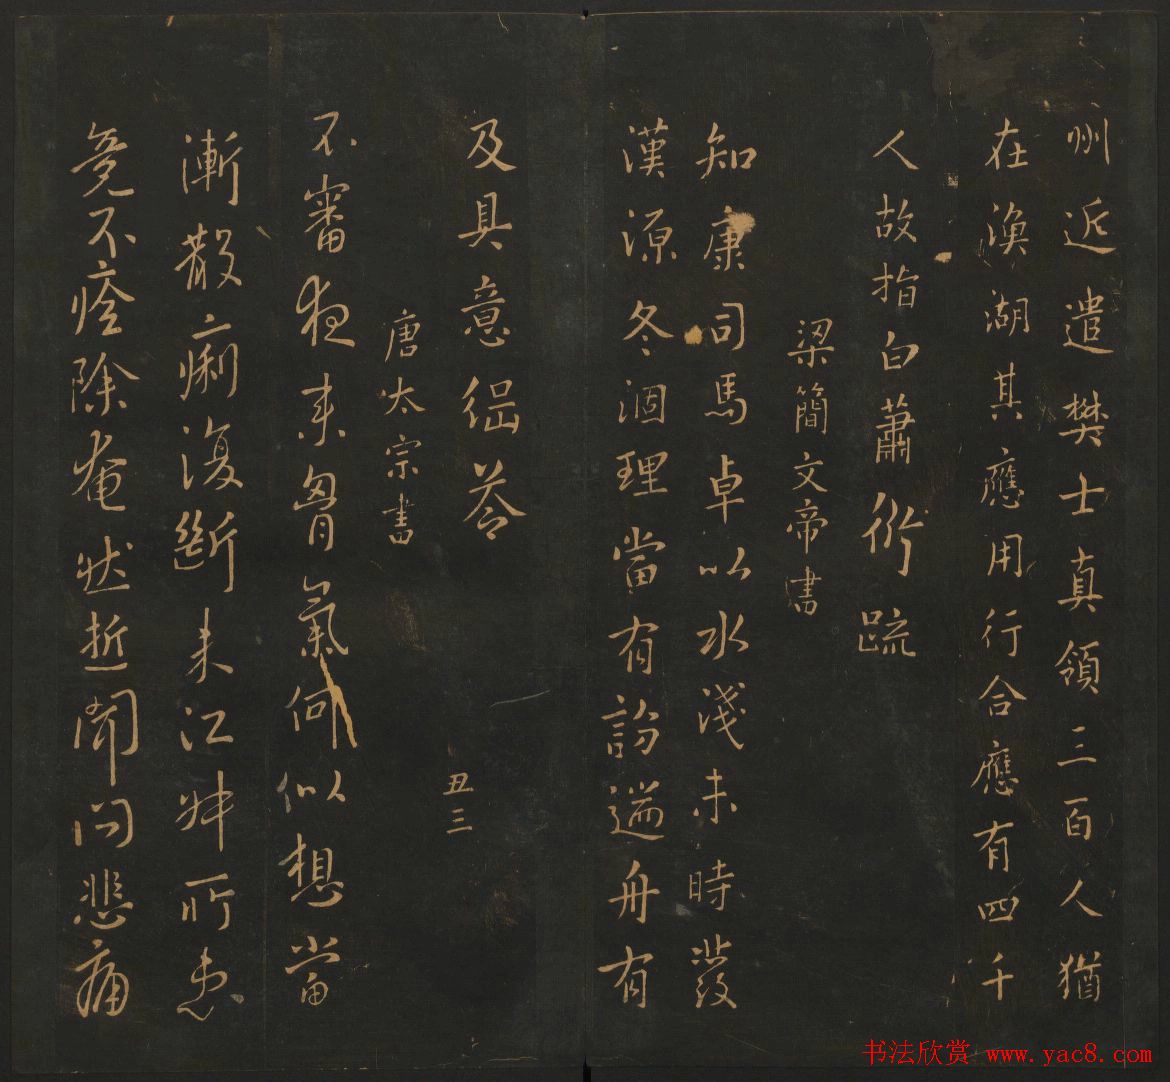 州近遣樊士真領三百人猶
在渙湖其應用行合應有四千
人故指白蕭衍疏
梁簡文帝書
知康司馬卓以水淺未時發
漢源冬涸理當有訪遄舟有
及具意綱荅
丑三
唐太宗書
不審夜來胷氣何似想當
漸散痢復斷未江妹所患
竟不痊除奄然逝聞問悲痛
书法欣赏 www.yac8.com